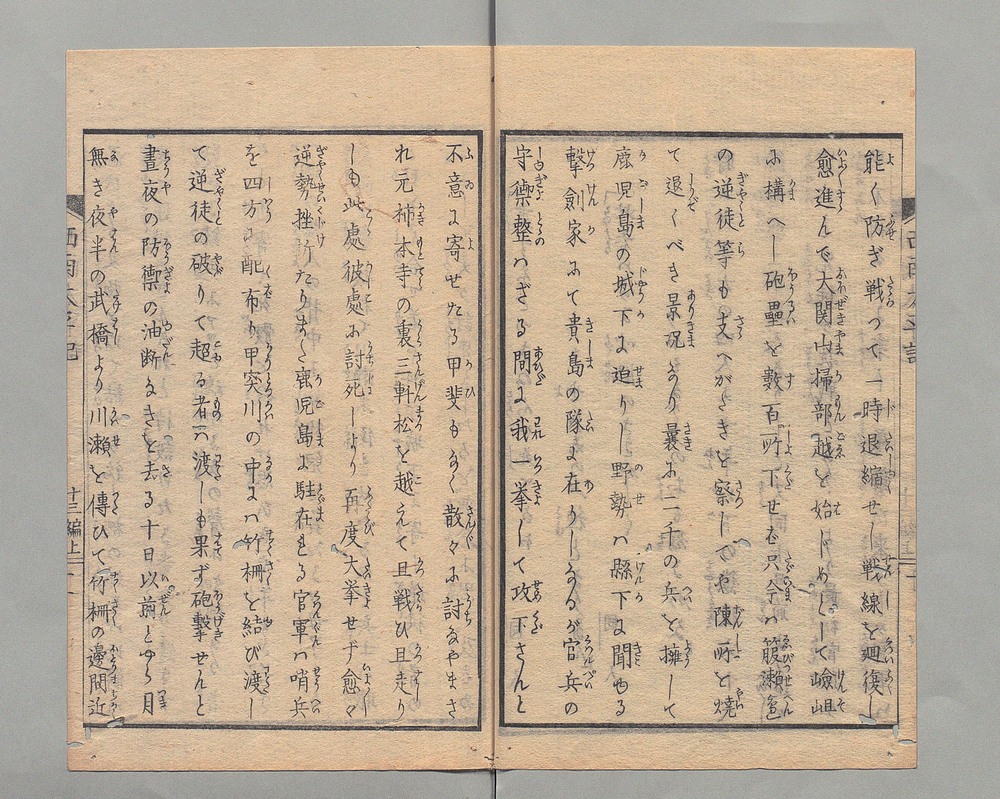 能く防ぎ戦つて一時退縮せし戦線を廻復し
愈進んで大関山掃部越を始じめとして嶮岨
に構へし砲壘を數百所下せば只今ハ籏瀬邉
の逆徒等も支へがたきを察しでや陳所を燒
て退くべき景況なり曩に二千の兵を擁して
鹿児島の城下に迫りし野勢ハ縣下に聞ゆる
撃劍家にて貴島の隊に在りしなるが官兵の
守禦整ハざる間に我一挙して攻下さんと
不意に寄せたる甲斐もなく散々に討なやまさ
れ元柿本寺の裏三軒松を越えて且戦ひ且走り
しも此處彼處に討死しより再度大挙せず愈々
逆勢挫けたりまた鹿児島に駐在する官軍ハ哨兵
を四方に配布り甲突川の中にハ竹柵を結び渡し
て逆徒の破りて超る者ハ渡しも果ず砲撃せんと
晝夜の防禦の油断なきを去る十日以前とゆう月
無き夜半の武橋より川瀬を傳ひて竹柵の邊間近
西南太平記
十三編上